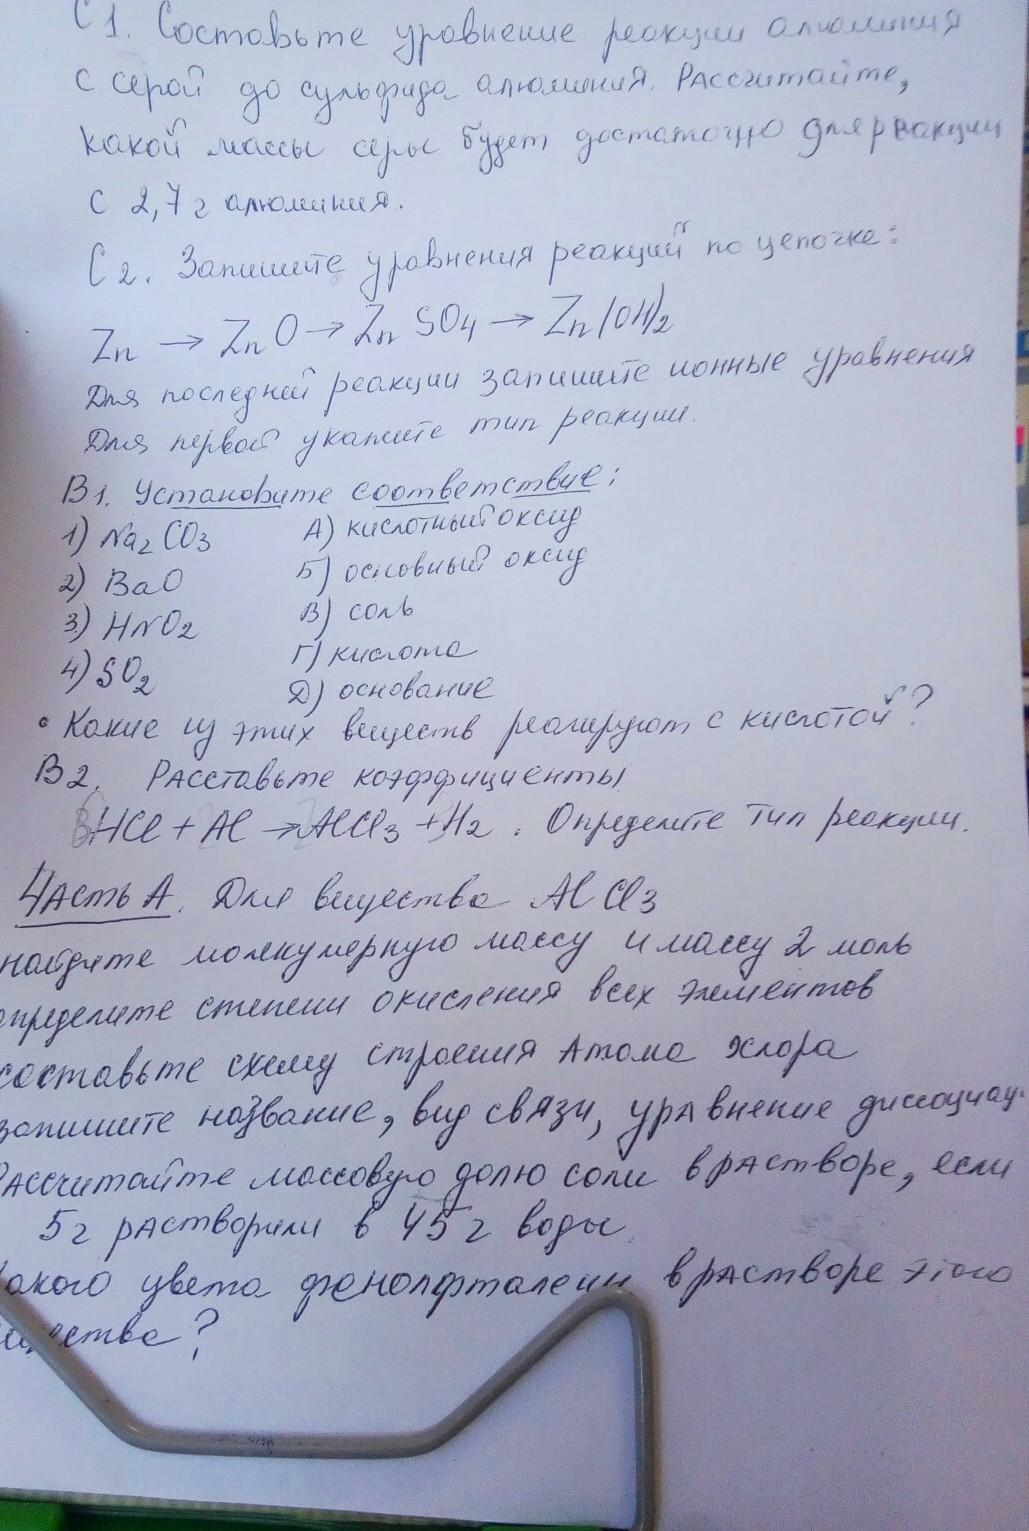 С1. Составьте уравнение реакции алюминия
с серой до сульфида алюминия. Рассчитайте,
какой массы серы будет достаточно для реакции
с 2,7 г алюминия.
С2. Запишите уравнения реакций по цепочке:
Zn → ZnO → ZnSO4 → Zn(OH)2
Для последней реакции запишите ионные уравнения
Для первой укажите тип реакции.
В1. Установите соответствие:
1) Na2CO3 А) кислотный оксид
2) BaO Б) основный оксид
3) HNO2 В) соль
4) SO2 Г) кислота
Д) основание
• Какие из этих веществ реагируют с кислотой?
В2. Расставьте коэффициенты
HCl + Al → AlCl3 + H2. Определите тип реакции.
Часть А. Для вещества AlCl3
найдите молекулярную массу и массу 2 моль
определите степени окисления всех элементов
составьте схему строения атома хлора
запишите название, вид связи, уравнение диссоциац.
Рассчитайте массовую долю соли в растворе, если
5 г растворили в 45 г воды.
какого цвета фенолфталеин в растворе этого
вещества?